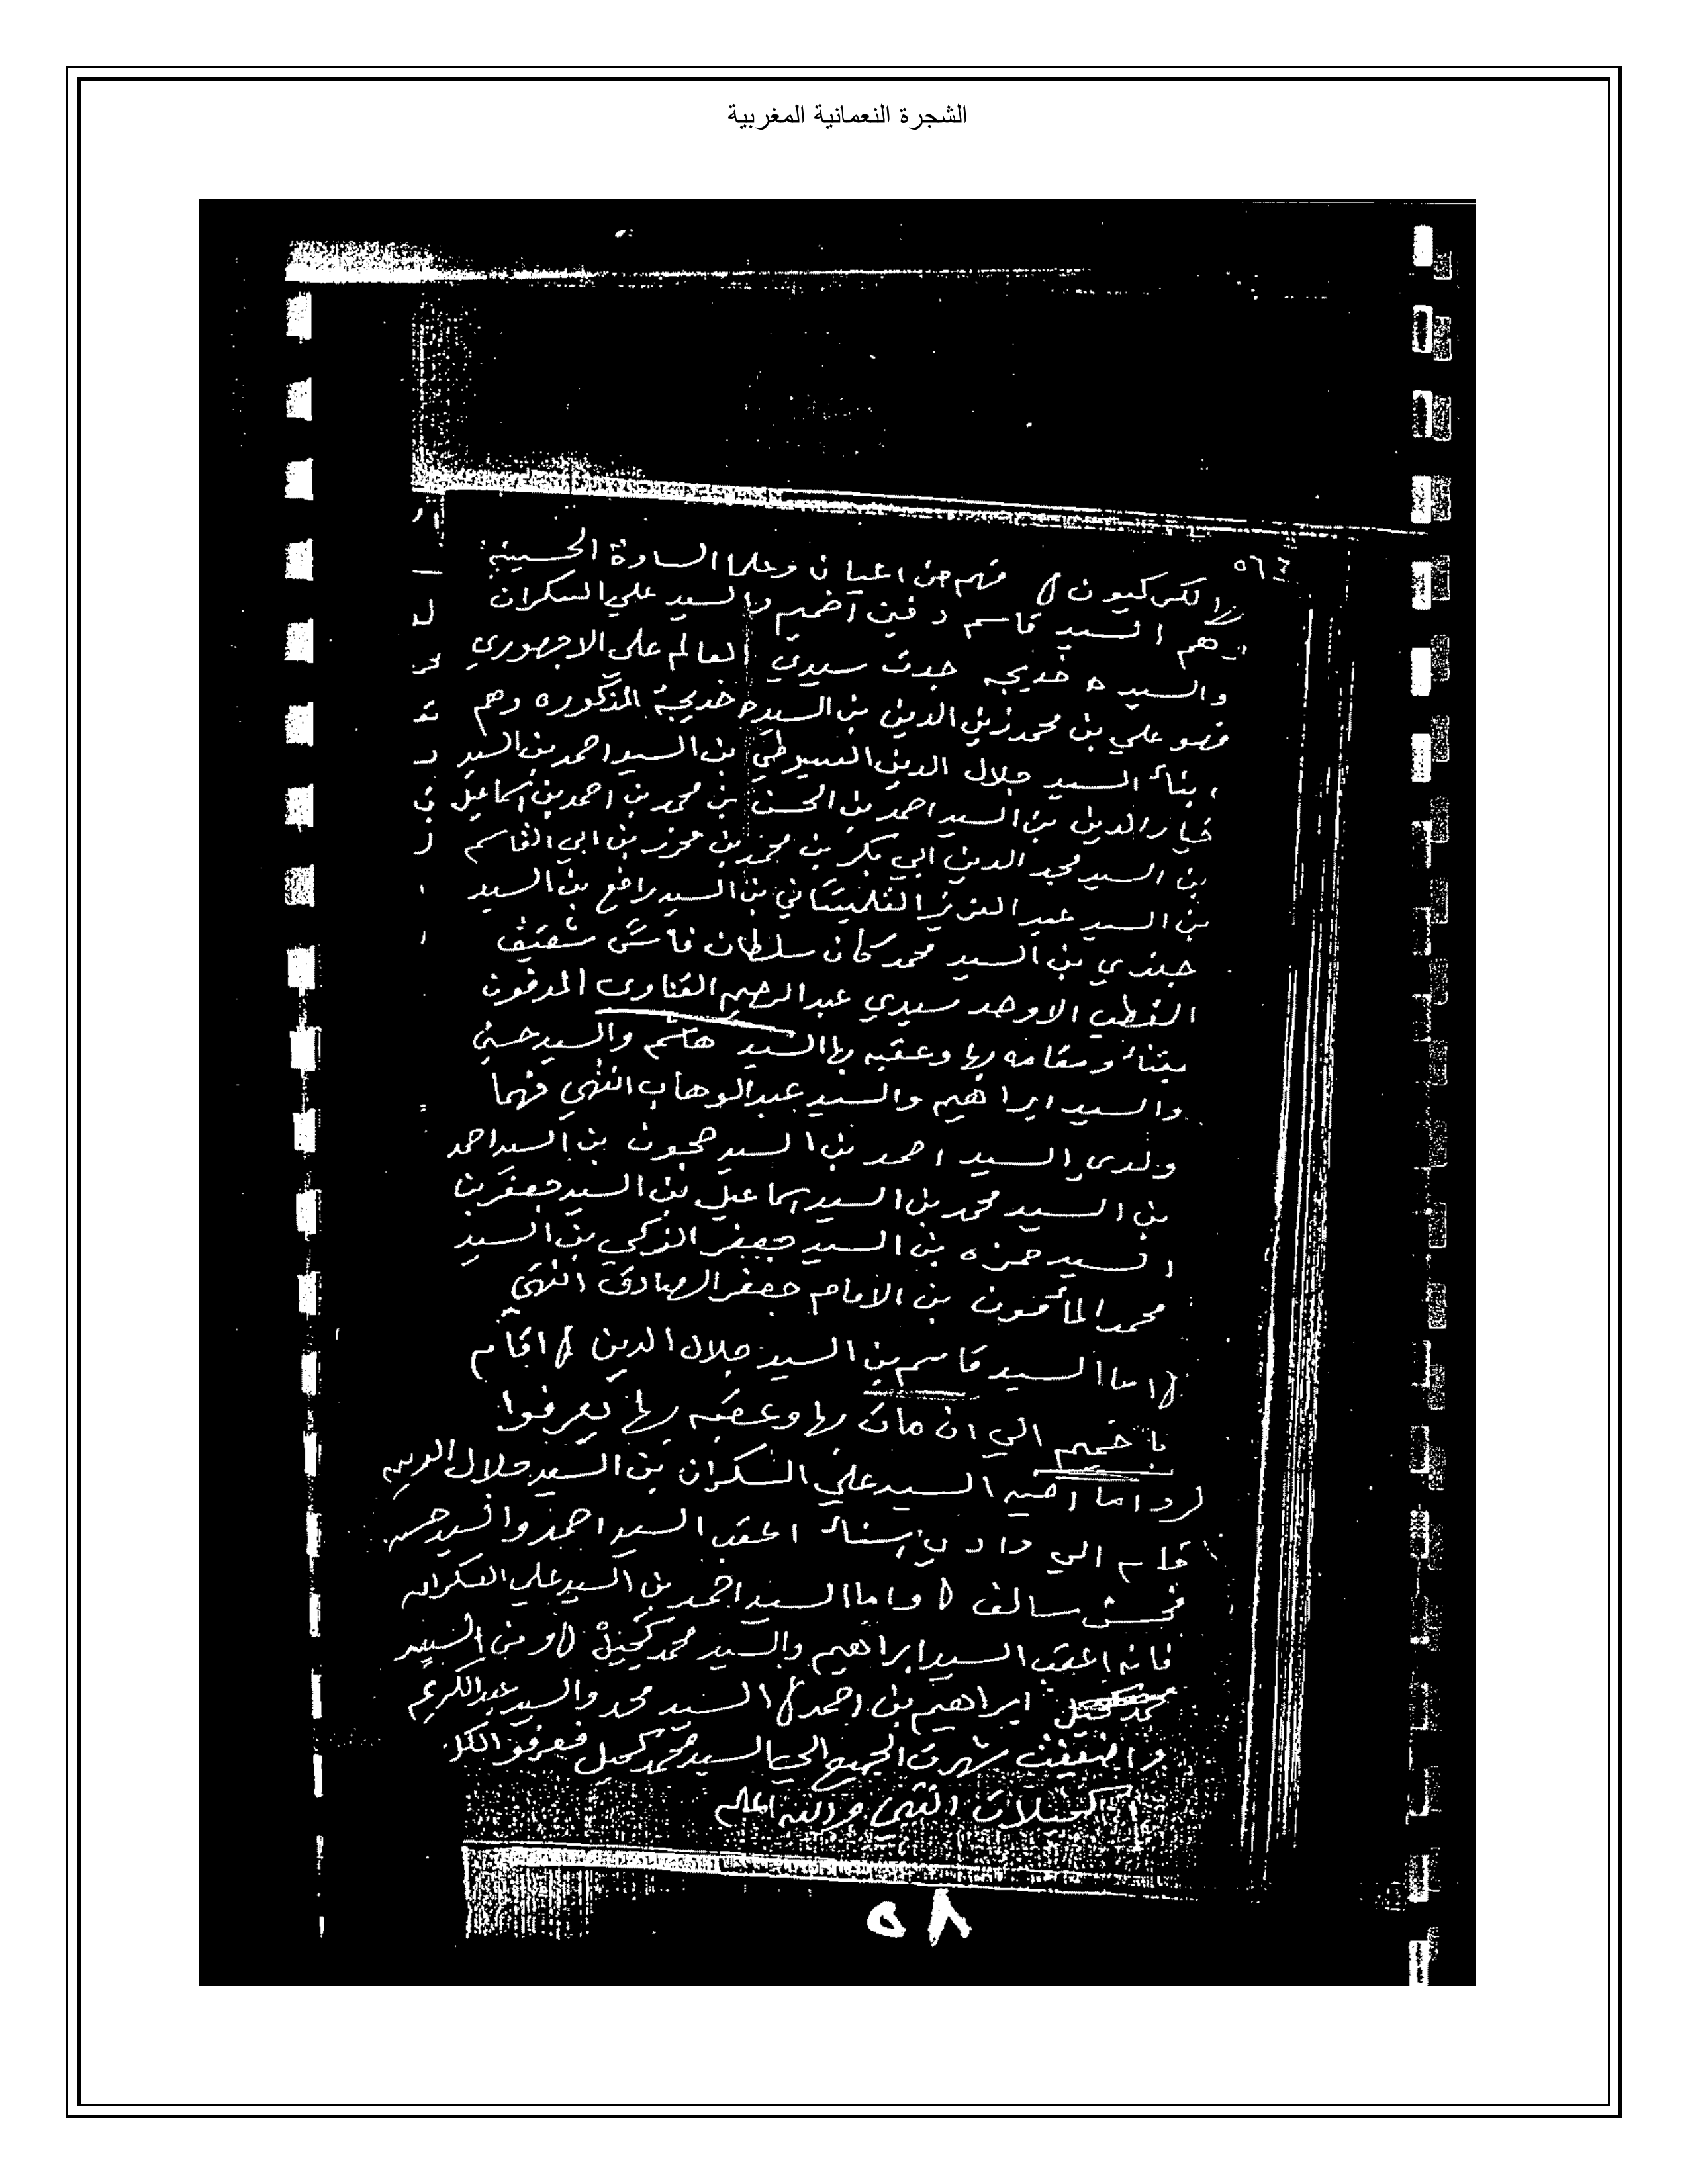 الشجرة النعمانية المغربية
٥٦٤
بها فهم من اعيان وعلما السادة الحسينية
وهم السيد قاسم دفين اخميم والسيد علي السكران
والسيده خديجه جدت سيدي العالم على الاجهوري
فهو علي بن محمد زين الدين بن السيده خديجة المذكوره وهم
ابناء السيد جلال الدين السيوطي بن السيد احمد بن السيد
خيار الدين بن السيد احمد بن الحسن بن محمد بن احمد بن اسماعيل
بن السيد مجد الدين ابي بكر بن محمد بن محرز بن ابي القاسم
بن السيد عبد العزيز بن السيد رافع بن السيد
جندي بن السيد محمد كان سلطان فاس شقيق
القطب الاوحد سيدي عبد الرحيم القناوى المدفون
بقناء ومقامه بها وعقبه بها السيد هاشم والسيد حسين
والسيد ابراهيم والسيد عبد الوهاب انتهي فهما
ولدي السيد احمد بن السيد حجون بن السيد احمد
بن السيد محمد بن السيد اسماعيل بن السيد جعفر بن
السيد حمزه بن السيد جعفر الزكي بن السيد
محمد المأمون بن الامام جعفر الصادق انتهى
اما السيد قاسم بن السيد جلال الدين اقام
باخميم الي ان مات بها وعقبه بها يعرفوا
واما اخيه السيد علي السكران بن السيد جلال الدين
قام الي وادي اعقب السيد احمد والسيد حسن
واما السيد احمد بن السيد علي السكران
فانه اعقب السيد ابراهيم والسيد محمد كحيل ومن السيد
ابراهيم بن احمد السيد محمد والسيد عبد الكريم
واضيفت شهرت الجميع الي السيد محمد كحيل فعرفو الكل
كحيلات انتهي والله اعلم
٥٨